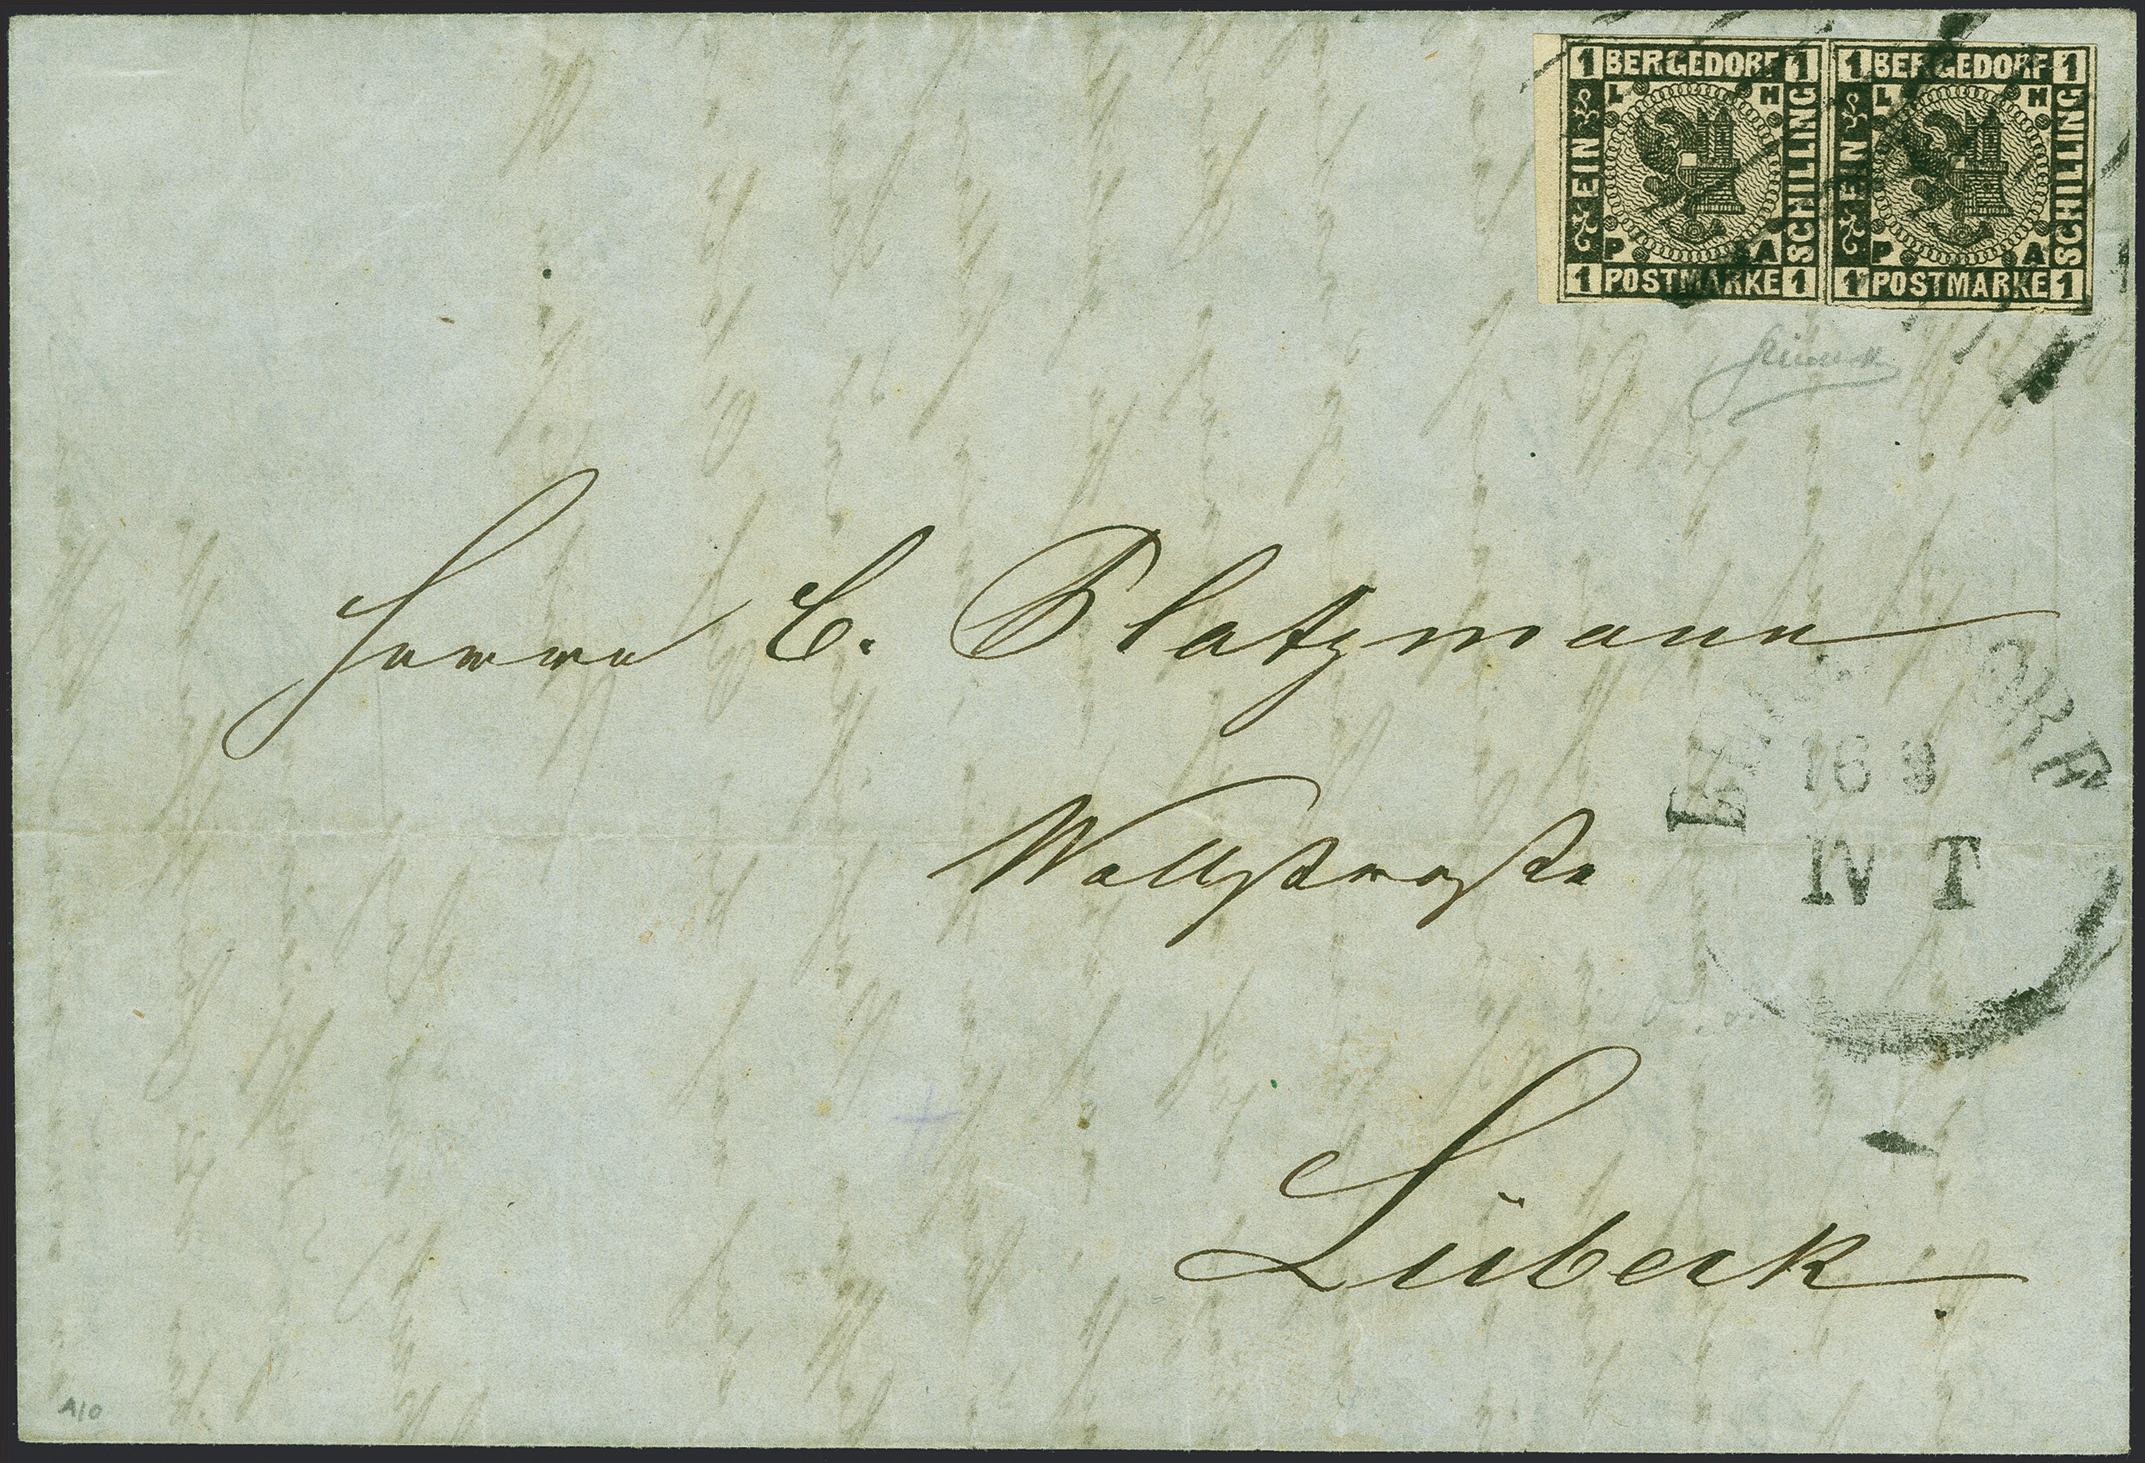 1 BERGEDORF 1
L H
EIN SCHILLING
P A
1 POSTMARKE 1
1 BERGEDORF 1
L H
EIN SCHILLING
P A
1 POSTMARKE 1
Herrn C. Platzmann
Wallstraße
16 9
IV T
Lübeck
A10